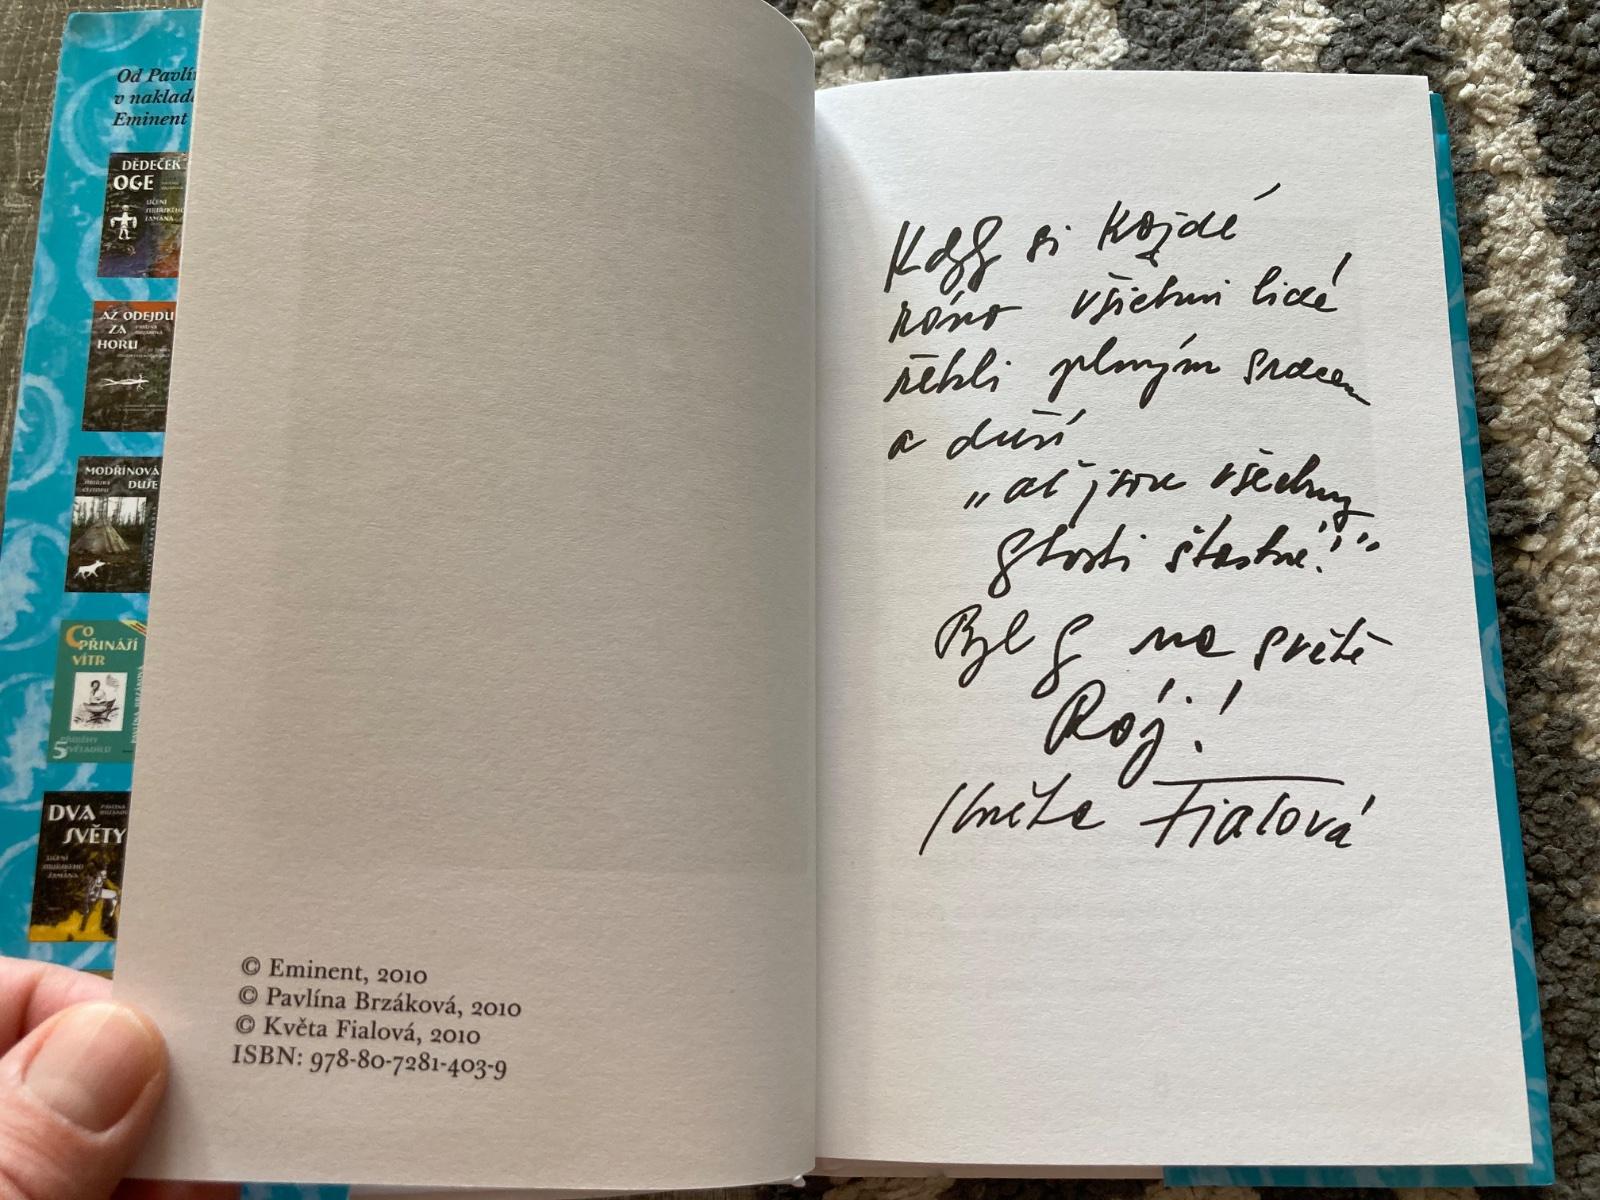 Od Pavlín
v naklada
Eminent
DĚDEČEK
OGE
UČENÍ
SIBIŘSKÉHO
ŠAMANA
AŽ ODEJDU
ZA
HORU
MODŘÍNOVÁ
DUŠE
CO
PŘINÁŠÍ
VÍTR
PAVLÍNA BRZÁKOVÁ
5
DVA
SVĚTY
UČENÍ
SIBIŘSKÉHO
ŠAMANA
© Eminent, 2010
© Pavlína Brzáková, 2010
© Květa Fialová, 2010
ISBN: 978-80-7281-403-9
Kdyby si každé
ráno všichni lidé
řekli plným srdcem
a duší
„ať jsou všechny
bytosti šťastné!"
Byl by na světě
Ráj!
Květa Fialová